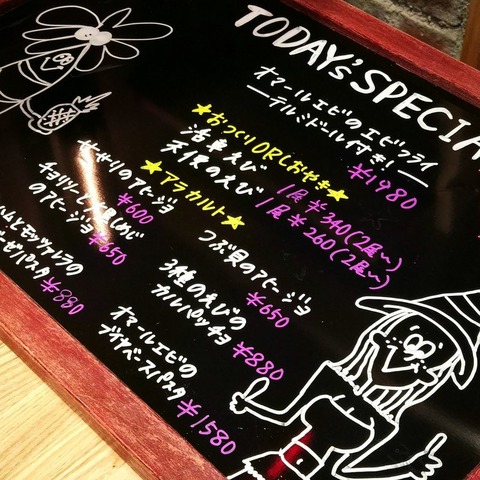 TODAY'S SPECIA
オマールエビのエビフライ
ーテルミドール付き!ー
¥1980
★おつくりORしおやき★
活車えび 1尾¥340(2尾〜)
天使のえび 1尾¥260(2尾〜)
★アラカルト★
つぶ貝のアヒージョ
¥650
3種のえびの
カルパッチョ
¥880
オマールエビの
ディヤベースパスタ
¥1580
¥600
チョリソーとしめじ
のアヒージョ ¥650
ハムとモッツァレラの
パスタ ¥880